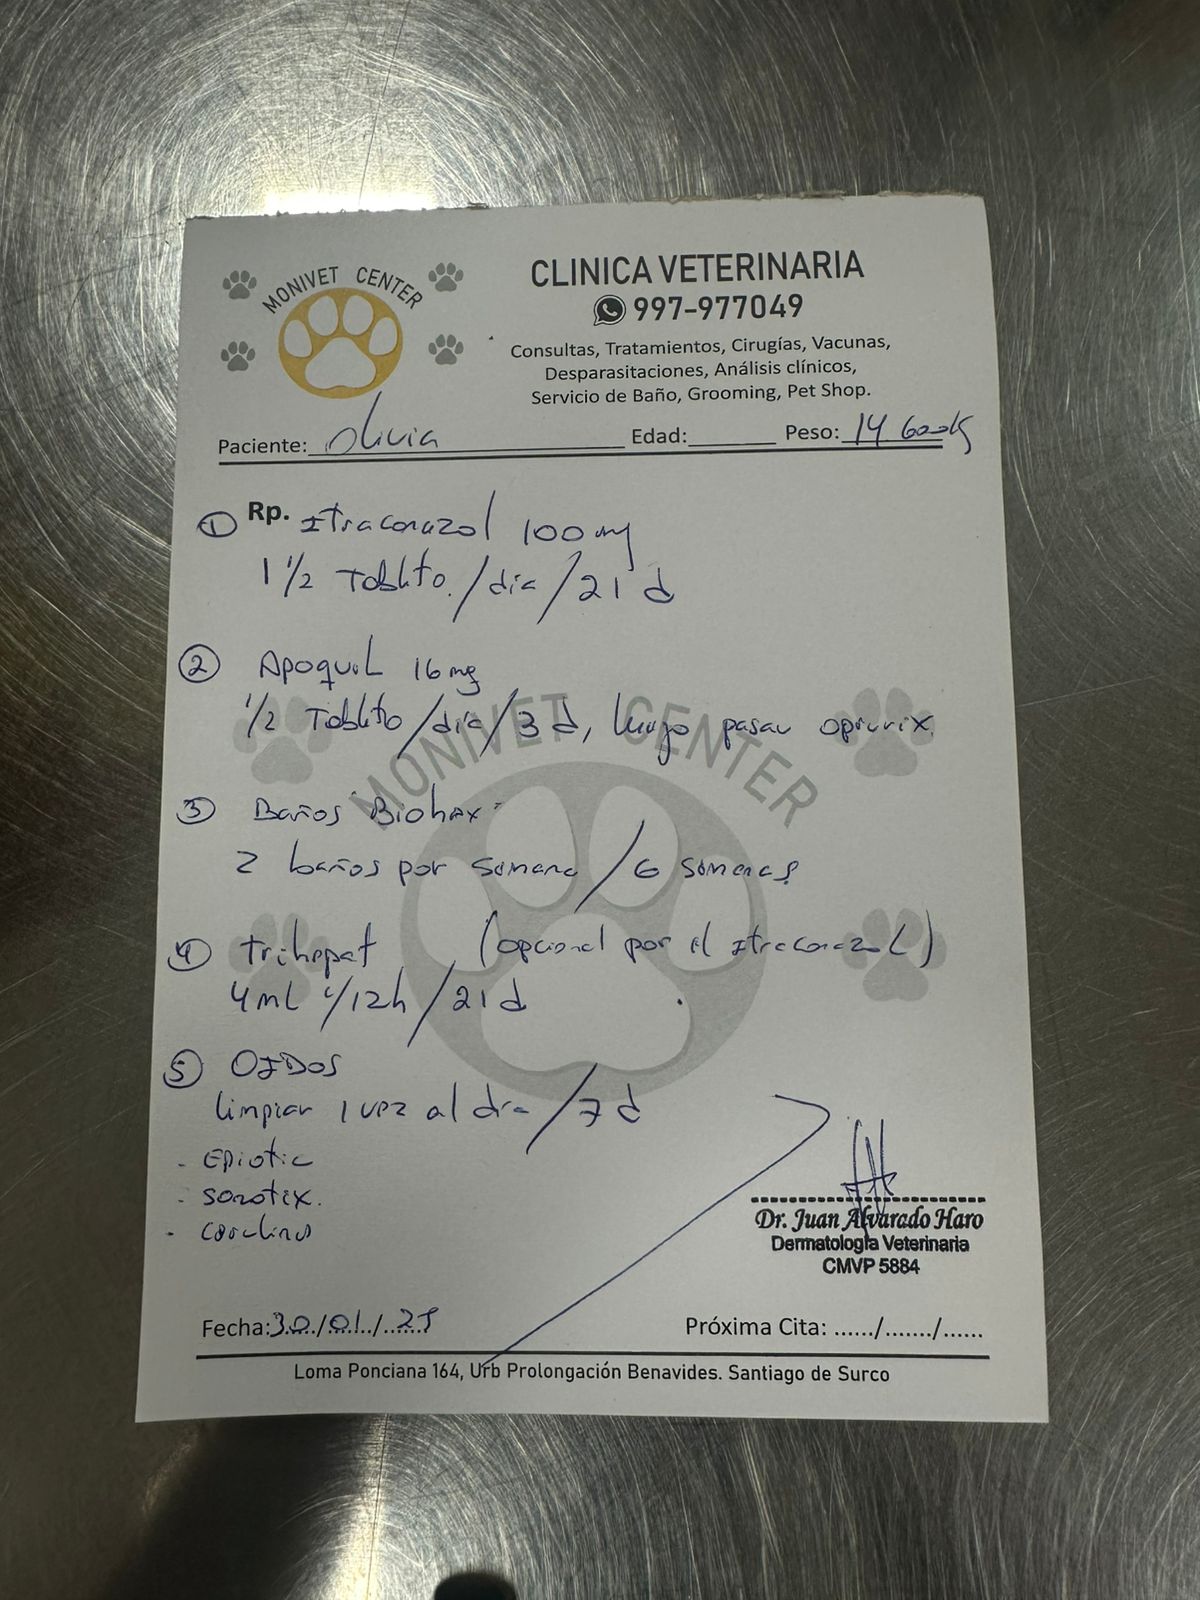 MONIVET CENTER
CLINICA VETERINARIA
997-977049
Consultas, Tratamientos, Cirugías, Vacunas,
Desparasitaciones, Análisis clínicos,
Servicio de Baño, Grooming, Pet Shop.
Paciente: Olivia Edad: Peso: 14.600kg
① Rp. Itraconazol 100 mg
1 1/2 Tableta /día/21 d
② Apoquel 16 mg
1/2 Tableta /día/3 d, luego pasar
③ Baños "Biohex"
2 baños por semana / 6 semanas
④ Trihepat (opcional por el Itraconazol)
4ml c/12h/21 d
⑤ OIDOS
limpiar 1 vez al día/7 d
- Epiotic
- Sonotix.
-
MONIVET CENTER
Dr. Juan Alvarado Haro
Dermatología Veterinaria
CMVP 5884
Fecha: 30/01/25 Próxima Cita: ....../......./......
Loma Ponciana 164, Urb Prolongación Benavides. Santiago de Surco